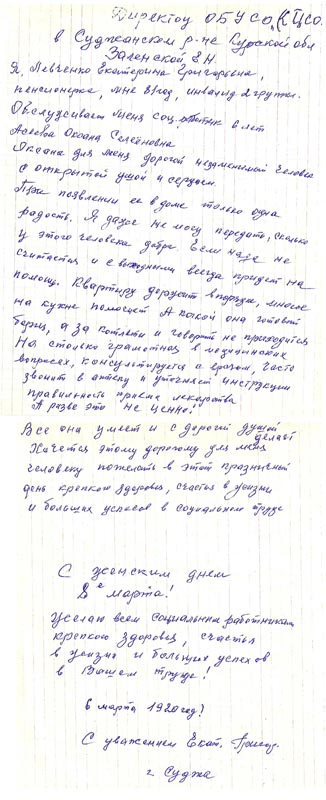 Директору ОБУСО "КЦСО
в Суджанском р-не Курской обл
Заленской Е.Н.
Я, Левченко Екатерина Григорьевна,
пенсионерка, мне 81 год, инвалид 2 группы.
Обслуживает меня соц. 6 лет
Асеева Оксана Семёновна
Оксана для меня дорогой незаменимый человек
с открытой душой и сердцем.
При появлении ее в доме только одна
радость. Я даже не могу передать, сколько
у этого человека добра. Если надо не
считается и с выходными всегда придет на
помощь. Квартиру держит в порядке, многое
на кухне помогает А какой она готовит
борщ, а за котлеты и говорить не приходится
На столько грамотная в медицинских
вопросах, консультируется с врачом, часто
звонит в аптеку и уточняет инструкции
правильность приема лекарства
А разве это не ценно!
Все она умеет и с дорогой душой
делает
Хочется этому дорогому для меня
человеку пожелать в этот праздничный
день крепкого здоровья, счастья в жизни
и больших успехов в социальном труде
С женским днем
8е марта!
Желаю всем социальным работникам
крепкого здоровья, счастья
в жизни и больших успехов
в Вашем труде!
6 марта 1920 год!
С уважением Екат. Григор.
г. Суджа